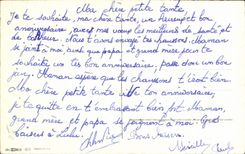 Ma chère petite tante,
Je te souhaite, ma chère tante, un heureux et bon
anniversaire, avec mes voeux les meilleurs de santé et
bonheur. Marie t'ans envoie tes chaussons. Maman
se joint à moi, ainsi que papa et grand mère pour te
souhaiter un très bon anniversaire, passe donc un bon
jour, Maman espère que les chaussons t'iront bien.
Ma chère petite tante, vive ton anniversaire,
je te quitte en t'embrassant bien fort. Maman,
grand mère et papa se joignent à moi. Gros
baisers à Lulu. Bons baisers
Mireille